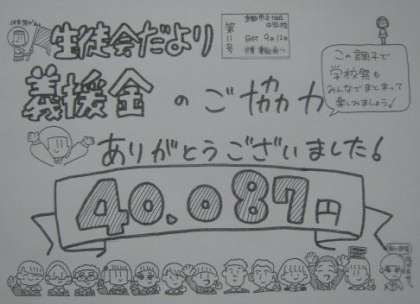 生徒会だより
第11号
義援金のご協力
この調子で
学校祭も
みんなでまとまって
楽しみましょう!
ありがとうございました!
40.087円